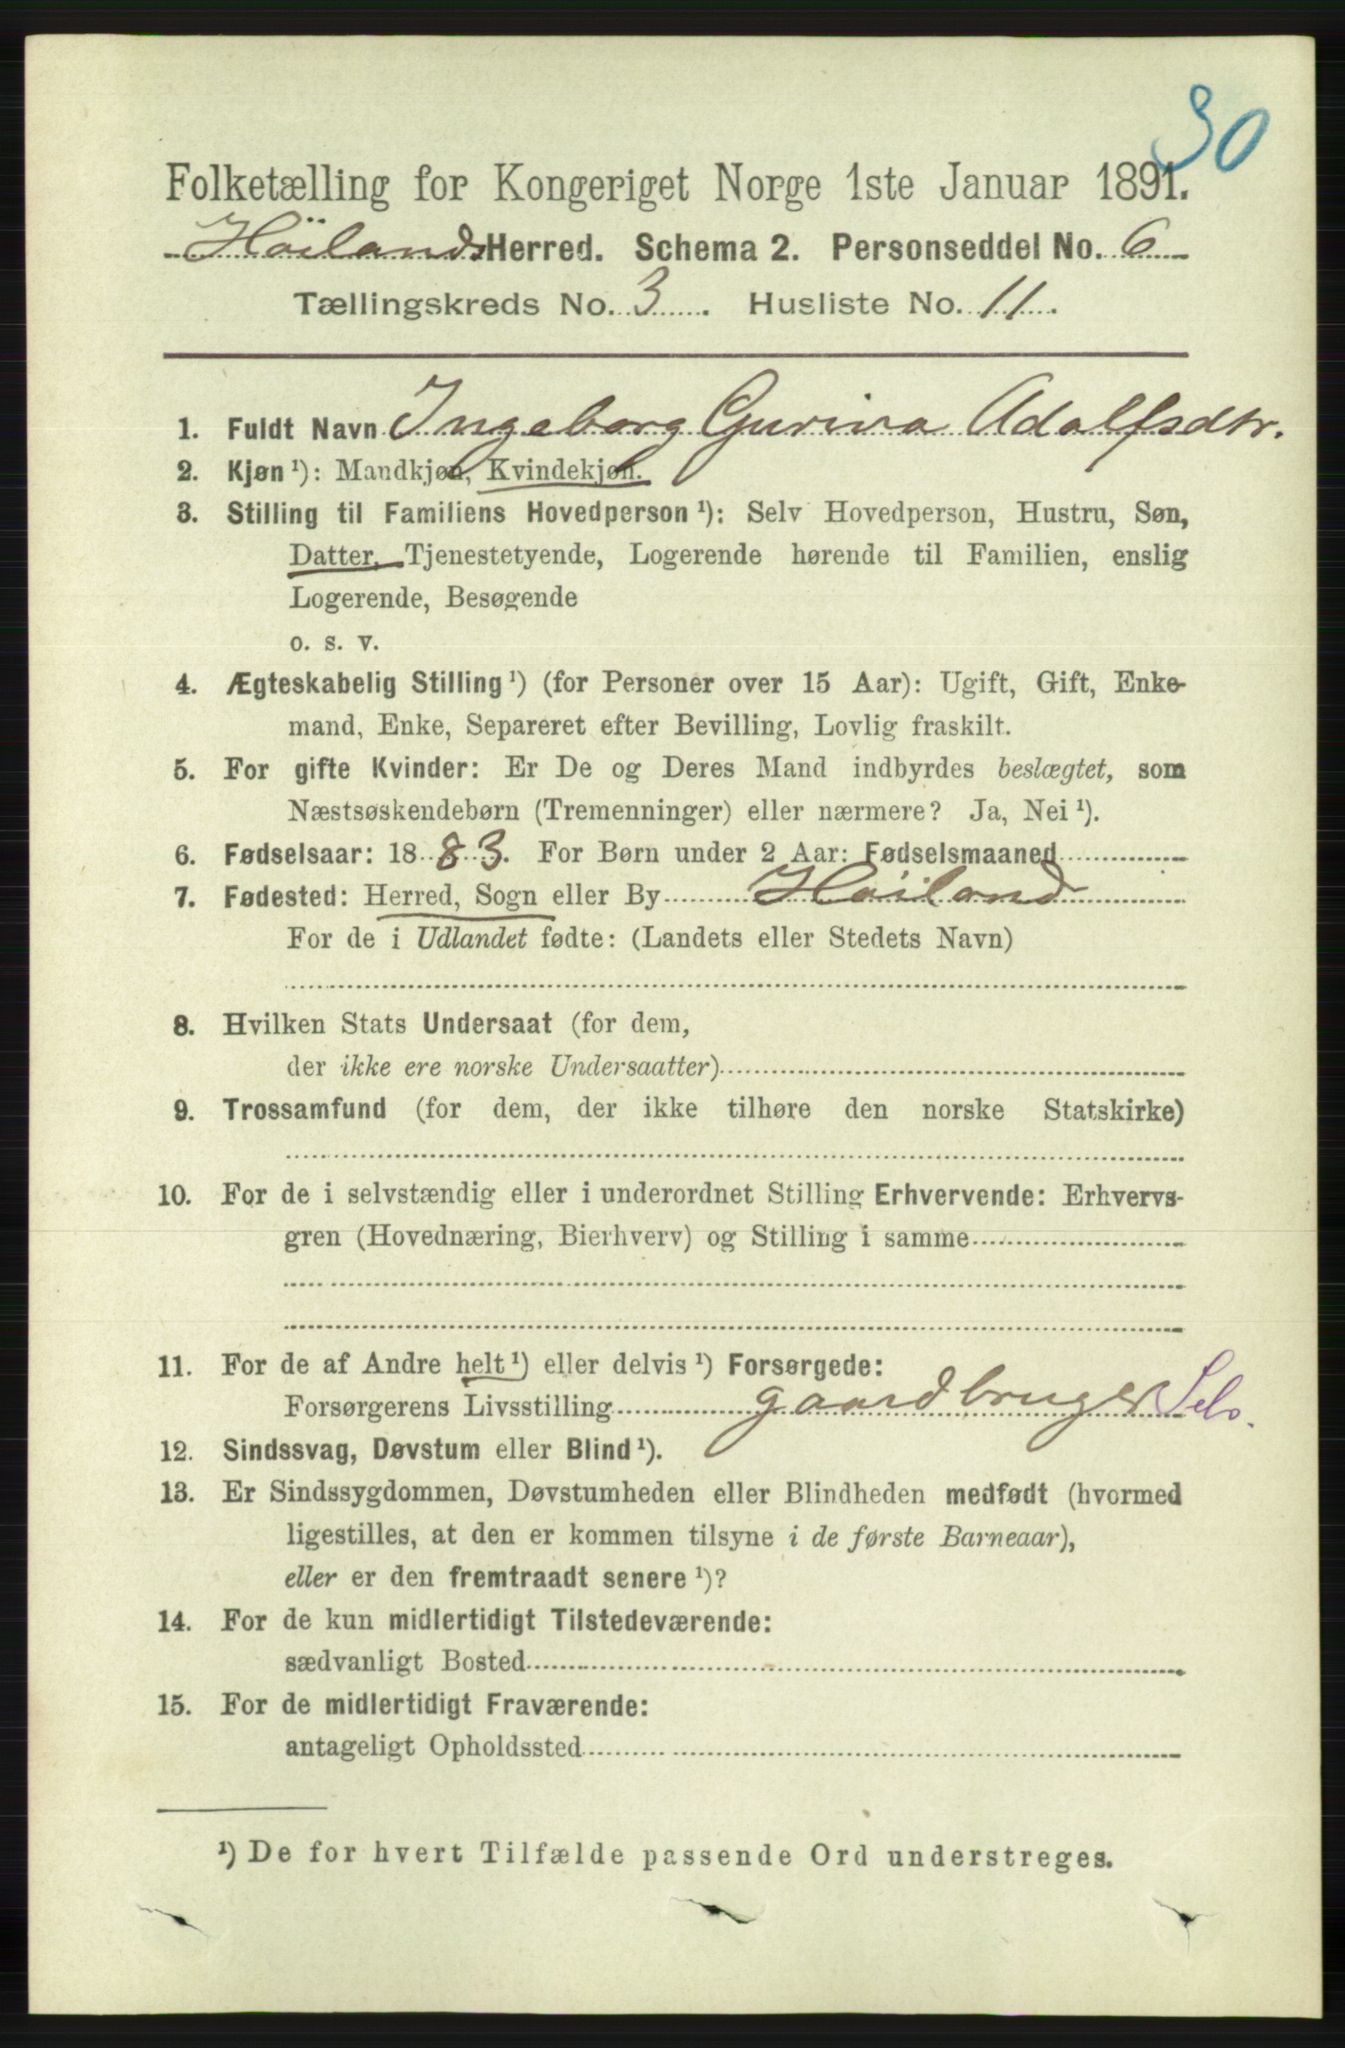 30
Folketælling for Kongeriget Norge 1ste Januar 1891.
Höilands Herred. Schema 2. Personseddel No. 6
Tællingskreds No. 3. Husliste No. 11.
1. Fuldt Navn Ingeborg Gurina Adolfsdtr.
2. Kjøn ¹): Mandkjøn, Kvindekjøn.
3. Stilling til Familiens Hovedperson ¹): Selv Hovedperson, Hustru, Søn,
Datter, Tjenestetyende, Logerende hørende til Familien, enslig
Logerende, Besøgende
o. s. v.
4. Ægteskabelig Stilling ¹) (for Personer over 15 Aar): Ugift, Gift, Enke-
mand, Enke, Separeret efter Bevilling, Lovlig fraskilt.
5. For gifte Kvinder: Er De og Deres Mand indbyrdes beslægtet, som
Næstsøskendebørn (Tremenninger) eller nærmere? Ja, Nei ¹).
6. Fødselsaar: 1883. For Børn under 2 Aar: Fødselsmaaned
7. Fødested: Herred, Sogn eller By Höiland
For de i Udlandet fødte: (Landets eller Stedets Navn)
8. Hvilken Stats Undersaat (for dem,
der ikke ere norske Undersaatter)
9. Trossamfund (for dem, der ikke tilhøre den norske Statskirke)
10. For de i selvstændig eller i underordnet Stilling Erhvervende: Erhvervs-
gren (Hovednæring, Bierhverv) og Stilling i samme
11. For de af Andre helt ¹) eller delvis ¹) Forsørgede:
Forsørgerens Livsstilling gaardbruger Selv.
12. Sindssvag, Døvstum eller Blind ¹).
13. Er Sindssygdommen, Døvstumheden eller Blindheden medfødt (hvormed
ligestilles, at den er kommen tilsyne i de første Barneaar),
eller er den fremtraadt senere ¹)?
14. For de kun midlertidigt Tilstedeværende:
sædvanligt Bosted
15. For de midlertidigt Fraværende:
antageligt Opholdssted
¹) De for hvert Tilfælde passende Ord understreges.